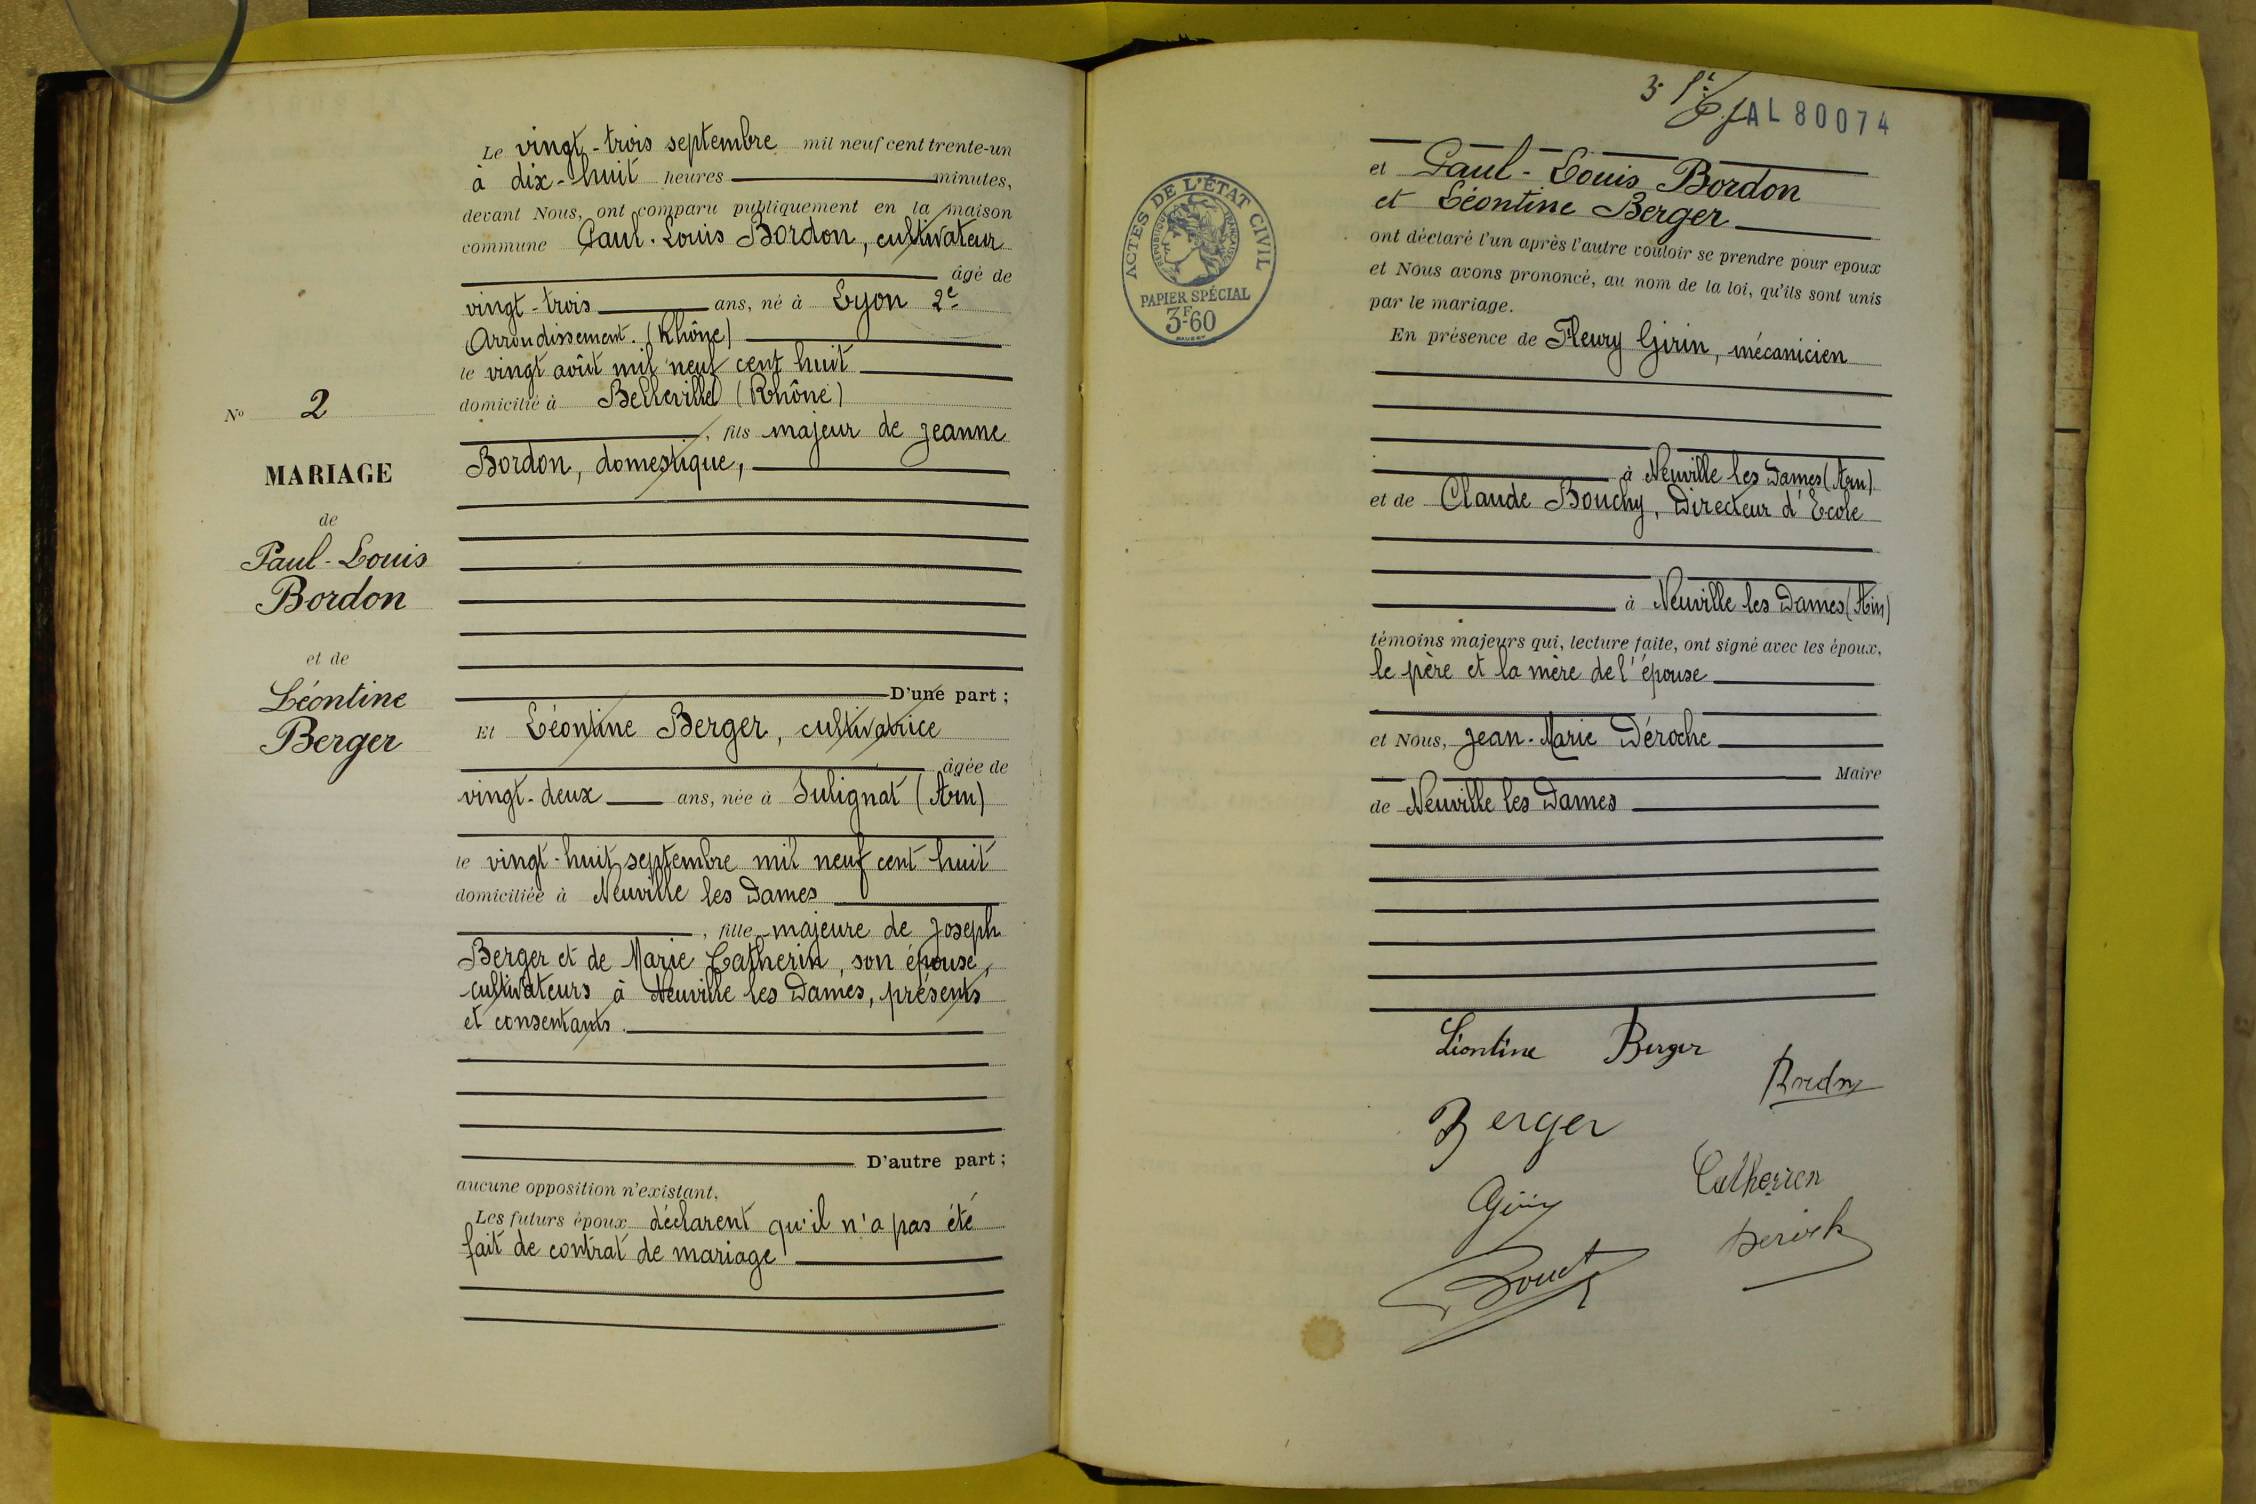 Le vingt-trois septembre mil neuf cent trente-un
à dix-huit heures minutes,
devant Nous, ont comparu publiquement en la maison
commune Paul-Louis Bordon, cultivateur
âgé de
vingt-trois ans, né à Lyon 2e
Arrondissement. (Rhône)
le vingt août mil neuf cent huit
domicilié à Belleville (Rhône)
, fils majeur de Jeanne
Bordon, domestique,
D'une part ;
Et Léontine Berger, cultivatrice
âgée de
vingt-deux ans, née à Sulignat (Ain)
le vingt-huit septembre mil neuf cent huit
domiciliée à Neuville les Dames
, fille majeure de Joseph
Berger et de Marie Catherin, son épouse,
cultivateurs à Neuville les Dames, présents
et consentants.
D'autre part ;
aucune opposition n'existant,
Les futurs époux déclarent qu'il n'a pas été
fait de contrat de mariage
No 2
MARIAGE
de
Paul-Louis
Bordon
et de
Léontine
Berger
AL 80074
ACTES DE L'ÉTAT CIVIL
RÉPUBLIQUE FRANÇAISE
PAPIER SPÉCIAL
3F-60
et Paul-Louis Bordon
et Léontine Berger
ont déclaré l'un après l'autre vouloir se prendre pour epoux
et Nous avons prononcé, au nom de la loi, qu'ils sont unis
par le mariage.
En présence de Fleury Girin, mécanicien
à Neuville les Dames (Ain)
et de Claude Bouchy, Directeur d'Ecole
à Neuville les Dames (Ain)
témoins majeurs qui, lecture faite, ont signé avec les époux,
le père et la mère de l'épouse
et Nous, Jean-Marie Déroche
Maire
de Neuville les Dames
Léontine Berger
Berger
Catherin